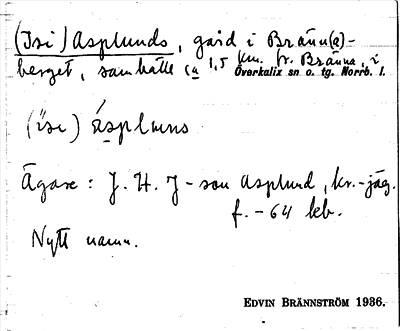 (Isi) Asplunds, gård i Bränn(a)-
berget, samhälle ca 1,5 km. fr. Bränna, i
Överkalix sn o. tg. Norrb. l.
(isi) àspluns
Ägare: J. H. J-son Asplund, kr.-jäg.
f. -64 leb.
Nytt namn.
EDVIN BRÄNNSTRÖM 1936.